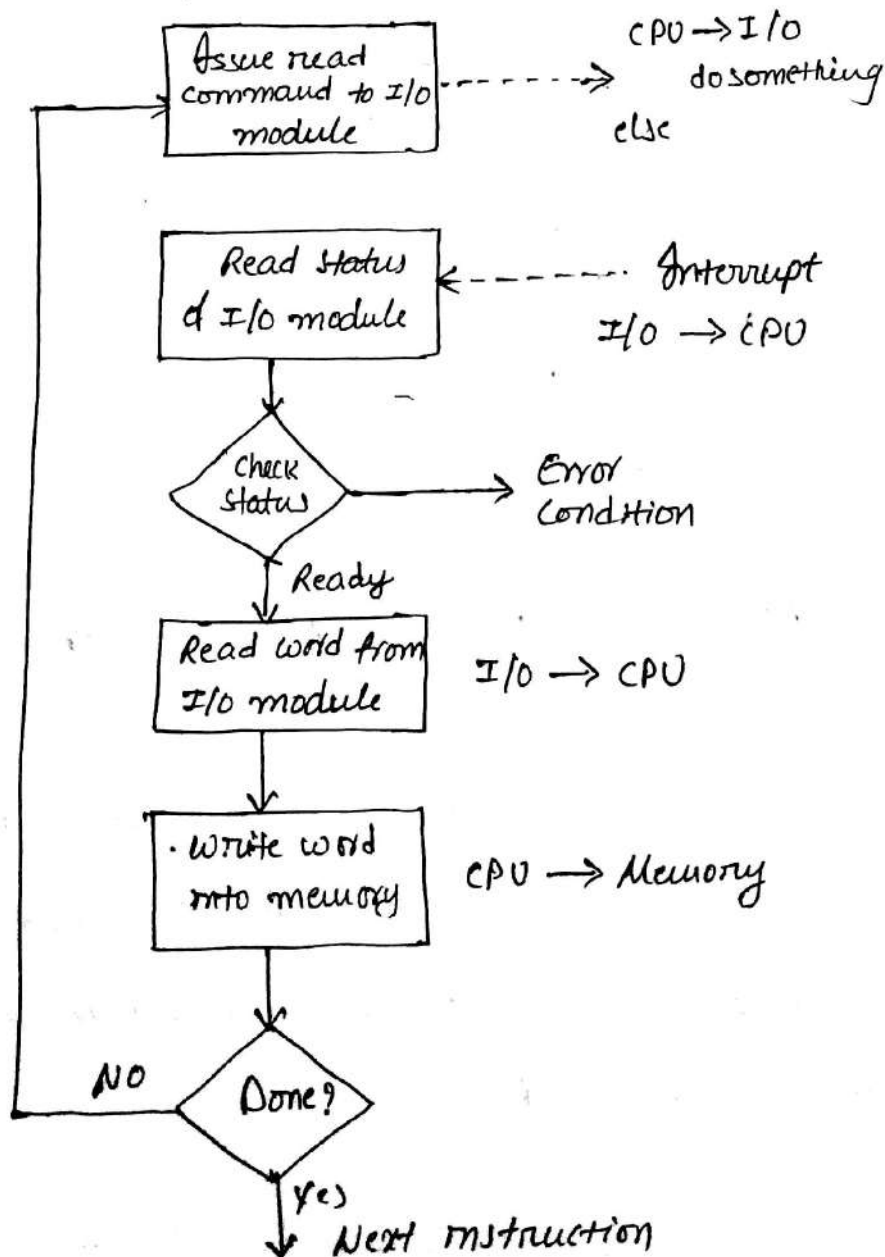 Issue read
command to I/O
module
CPU → I/O
do something
else
Read status
of I/O module
Interrupt
I/O → CPU
Check
status
Error
Condition
Ready
Read word from
I/O module
I/O → CPU
Write word
into memory
CPU → Memory
NO
Done?
Yes
Next instruction